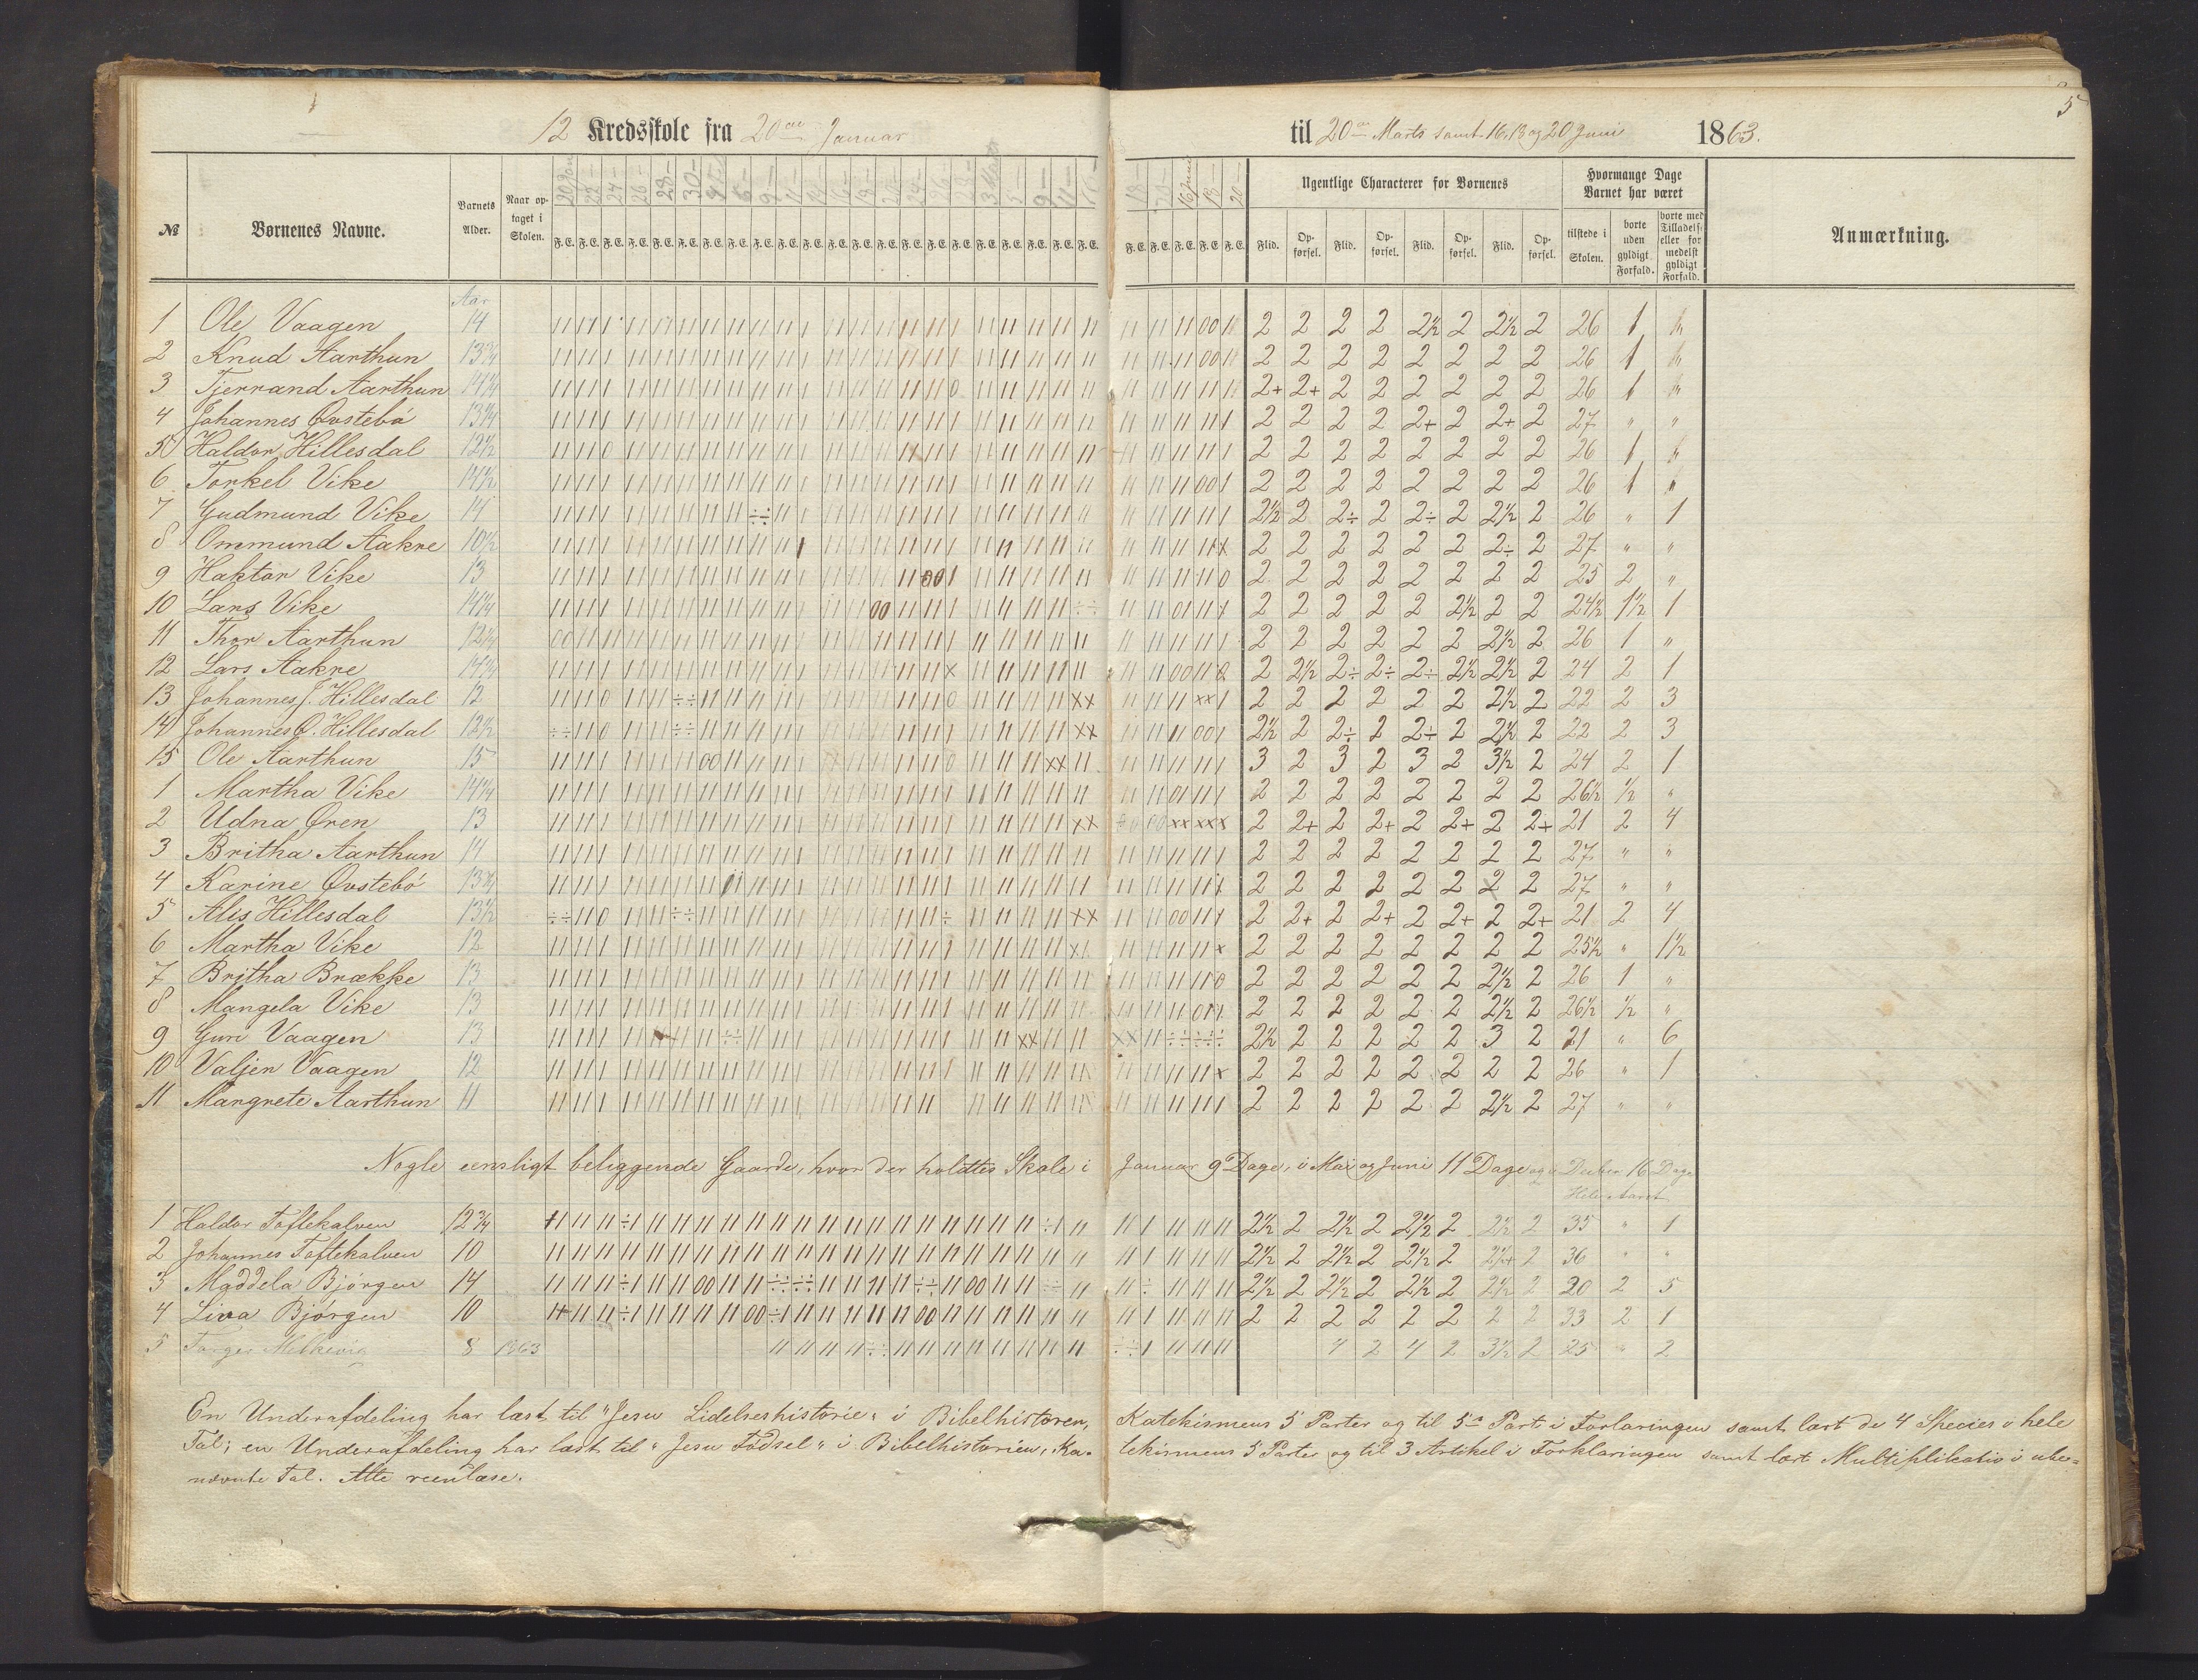 5
12 Kredsskole fra 20de Januar til 20de Marts samt 16, 18 og 20 Juni 1863.
№ Børnenes Navne. Barnets Alder. Naar op- taget i Skolen. Ugentlige Characterer for Børnenes Hvormange Dage Barnet har været Anmærkning.
F.E. Flid. Op- førsel. Flid. Op- førsel. Flid. Op- førsel. Flid. Op- førsel. tilstede i Skolen. borte uden gyldigt Forfald. borte med Tilladelse eller for medelst gyldigt Forfald.
Aar
1 Ole Vaagen 14 2 2 2 2 2½ 2 2½ 2 26 1 "
2 Knud Aarthun 13¾ 2 2 2 2 2 2 2 2 26 1 "
3 Tjerrand Aarthun 14¼ 2+ 2+ 2 2 2 2 2 2 26 1 "
4 Johannes Øvstebö 13¾ 2 2 2 2 2+ 2 2+ 2 27 " "
5 Haldor Hillesdal 12½ 2 2 2 2 2 2 2 2 26 1 "
6 Torkel Vike 14½ 2 2 2 2 2 2 2 2 26 1 "
7 Gudmund Vike 14 2½ 2 2÷ 2 2÷ 2 2½ 2 26 " 1
8 Ommund Aakre 10½ 2 2 2 2 2 2 2÷ 2 27 " "
9 Haktor Vike 13 2 2 2 2 2 2 2 2 25 2 "
10 Lars Vike 14¼ 2 2 2 2 2 2½ 2 2 24½ 1½ 1
11 Thor Aarthun 12¼ 2 2 2 2 2 2 2½ 2 26 1 "
12 Lars Aakre 14¾ 2 2½ 2÷ 2÷ 2÷ 2½ 2½ 2 24 2 1
13 Johannes J. Hillesdal 12 2 2 2 2 2 2 2½ 2 22 2 3
14 Johannes O. Hillesdal 12½ 2½ 2 2÷ 2 2÷ 2 2½ 2 22 2 3
15 Ole Aarthun 15 3 2 3 2 3 2 3½ 2 24 2 1
1 Martha Vike 14¼ 2 2 2 2 2 2 2 2 26½ ½ "
2 Udna Øren 13 2 2+ 2 2+ 2 2+ 2 2+ 21 2 4
3 Britha Aarthun 14 2 2 2 2 2 2 2 2 27 " "
4 Karine Øvstebö 13¾ 2 2 2 2 2 2 2 2 27 " "
5 Alis Hillesdal 13½ 2 2+ 2 2+ 2 2+ 2 2+ 21 2 4
6 Martha Vike 12 2 2 2 2 2 2 2 2 25½ " 1½
7 Britha Brække 13 2 2 2 2 2 2 2½ 2 26 1 "
8 Mangela Vike 13 2 2 2 2 2 2 2½ 2 26½ ½ "
9 Guri Vaagen 13 2½ 2 2 2 2 2 3 2 21 " 6
10 Valjer Vaagen 12 2 2 2 2 2 2 2 2 26 " 1
11 Margrete Aarthun 11 2 2 2 2 2 2 2½ 2 27 " "
Nogle eensligt beliggende Gaarde, hvor der holdtes Skole i Januar 9 Dage, i Mai og Juni 11 Dage og i Decbr 16 Dage
Hele Aaret
1 Haldor Toftekalven 12¾ 2½ 2 2½ 2 2½ 2 2½ 2 35 " 1
2 Johannes Toftekalven 10 2½ 2 2½ 2 2½ 2 2½+ 2 36 " "
3 Maddela Bjørgen 14 2½ 2 2½ 2 2½ 2 2½ 2 20 2 5
4 Liva Bjørgen 10 2 2 2 2 2 2 2 2 33 2 1
5 8 1863 4 2 4 2 3½ 2 25 " 2
En Underafdeling har læst til "Jesu Lidelseshistorie" i Bibelhistoren, Katekismens 5 Parter og til 5te Part i Forlaringen samt lært de 4 Species i hele
Tal; en Underafdeling har læst til "Jesu Fødsel" i Bibelhistorien, Ka- tekismens 5 Parter og til 3 Artikel i Forklaringen samt lært Multiplikation i ube-
nævnte Tal. Alle reenlæse.